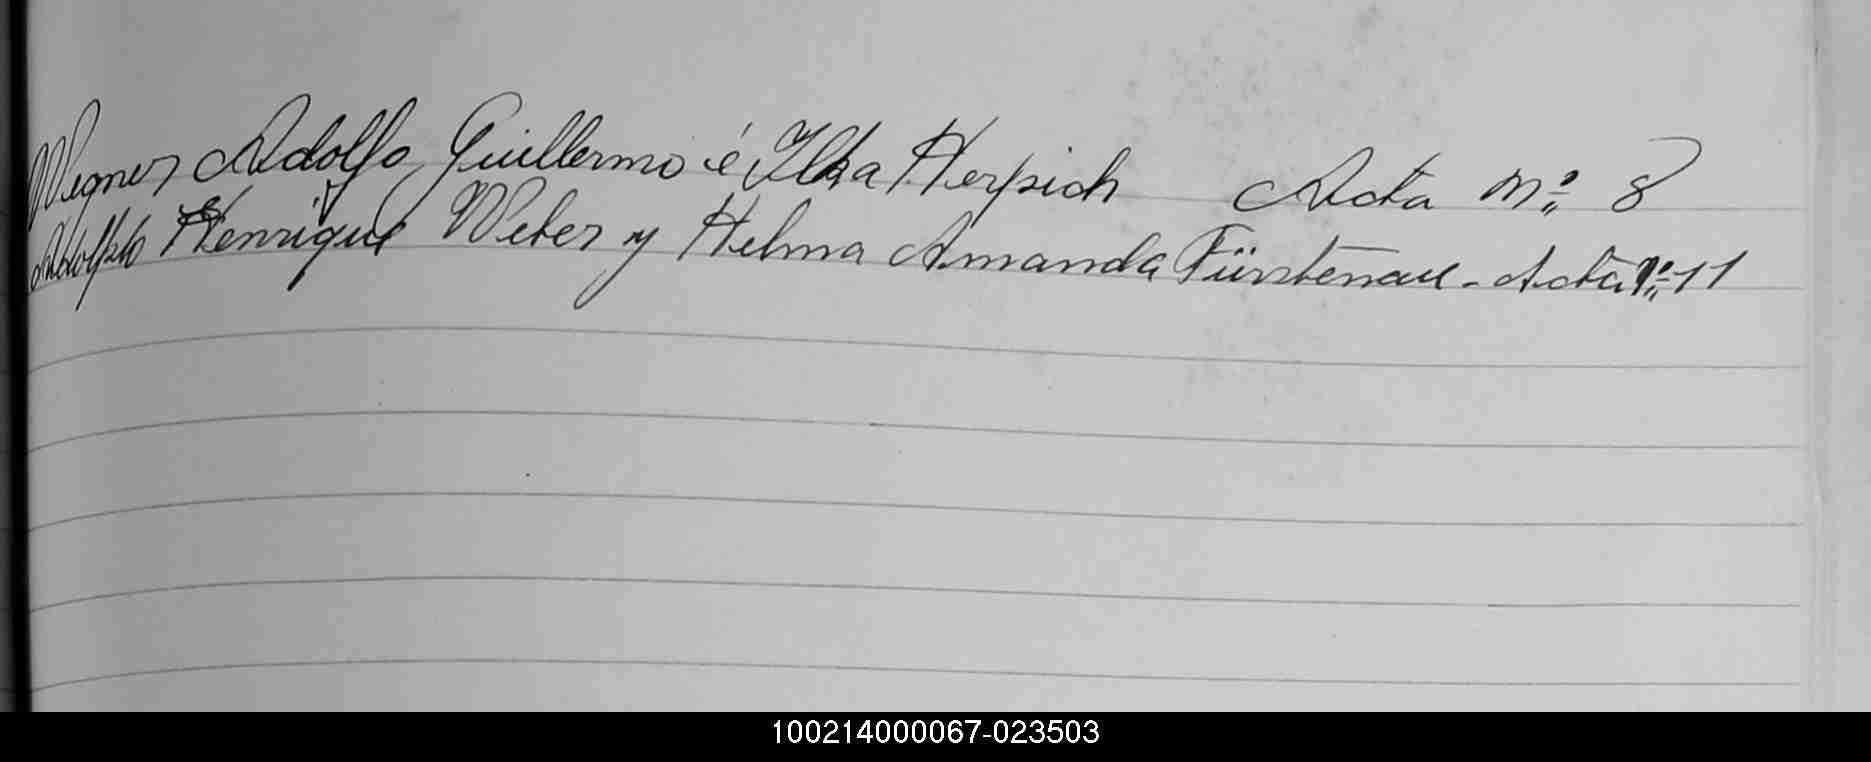 Wegner Adolfo Guillermo é Ilka Herpich Acta Nº 8
Adolfo Henrique Weber y Helma Amanda Fürstenau - Acta Nº 11
100214000067-023503